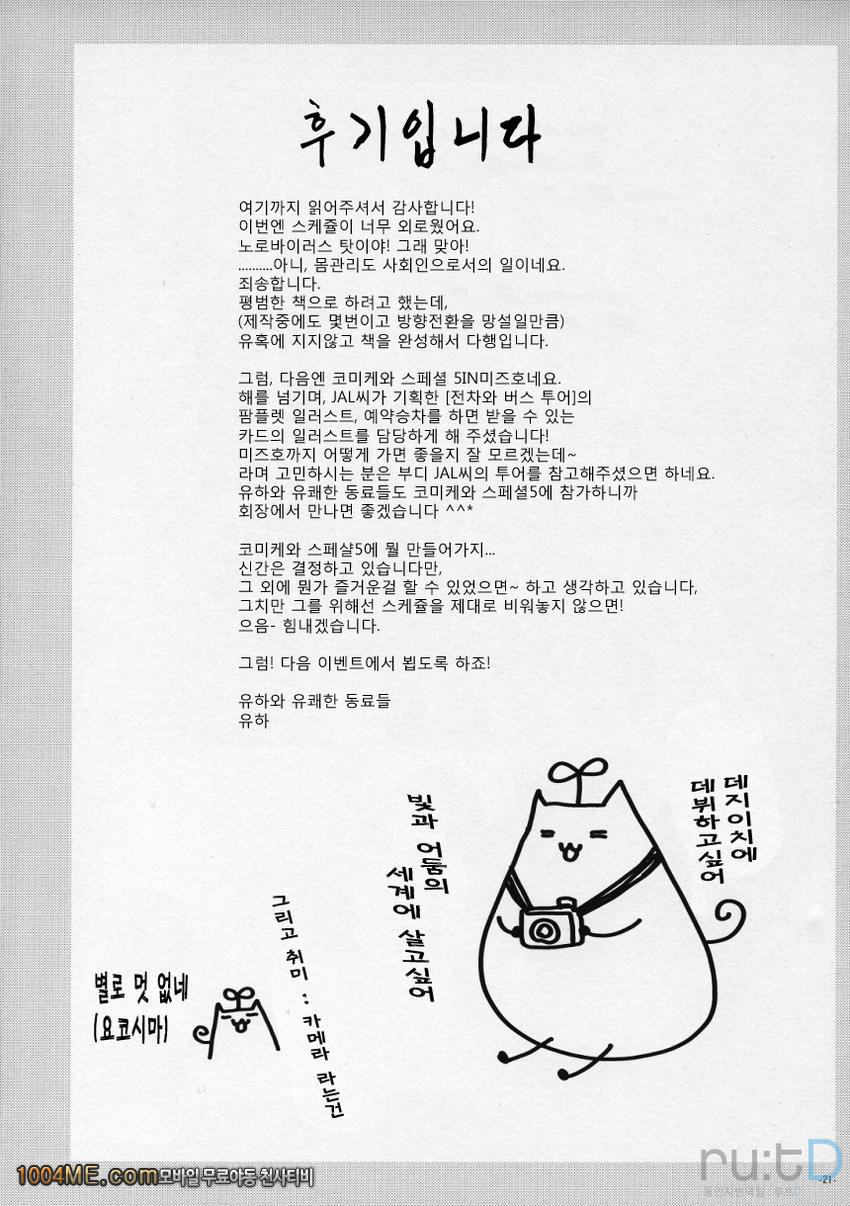 후기입니다
여기까지 읽어주셔서 감사합니다!
이번엔 스케쥴이 너무 외로웠어요.
노로바이러스 탓이야! 그래 맞아!
..........아니, 몸관리도 사회인으로서의 일이네요.
죄송합니다.
평범한 책으로 하려고 했는데,
(제작중에도 몇번이고 방향전환을 망설일만큼)
유혹에 지지않고 책을 완성해서 다행입니다.
그럼, 다음엔 코미케와 스페셜 5IN미즈호네요.
해를 넘기며, JAL씨가 기획한 [전차와 버스 투어]의
팜플렛 일러스트, 예약승차를 하면 받을 수 있는
카드의 일러스트를 담당하게 해 주셨습니다!
미즈호까지 어떻게 가면 좋을지 잘 모르겠는데~
라며 고민하시는 분은 부디 JAL씨의 투어를 참고해주셨으면 하네요.
유하와 유쾌한 동료들도 코미케와 스페셜5에 참가하니까
회장에서 만나면 좋겠습니다 ^^*
코미케와 스페샬5에 뭘 만들어가지...
신간은 결정하고 있습니다만,
그 외에 뭔가 즐거운걸 할 수 있었으면~ 하고 생각하고 있습니다,
그치만 그를 위해선 스케쥴을 제대로 비워놓지 않으면!
으음- 힘내겠습니다.
그럼! 다음 이벤트에서 뵙도록 하죠!
유하와 유쾌한 동료들
유하
데지이치에
데뷔하고싶어
빛과 어둠의
세계에 살고싶어
그리고 취미 : 카메라 라는건
별로 멋 없네
(요코시마)
1004ME.com모바일 무료야동 천사티비
ru:tD
동인지번역팀 : 루트D
-21-